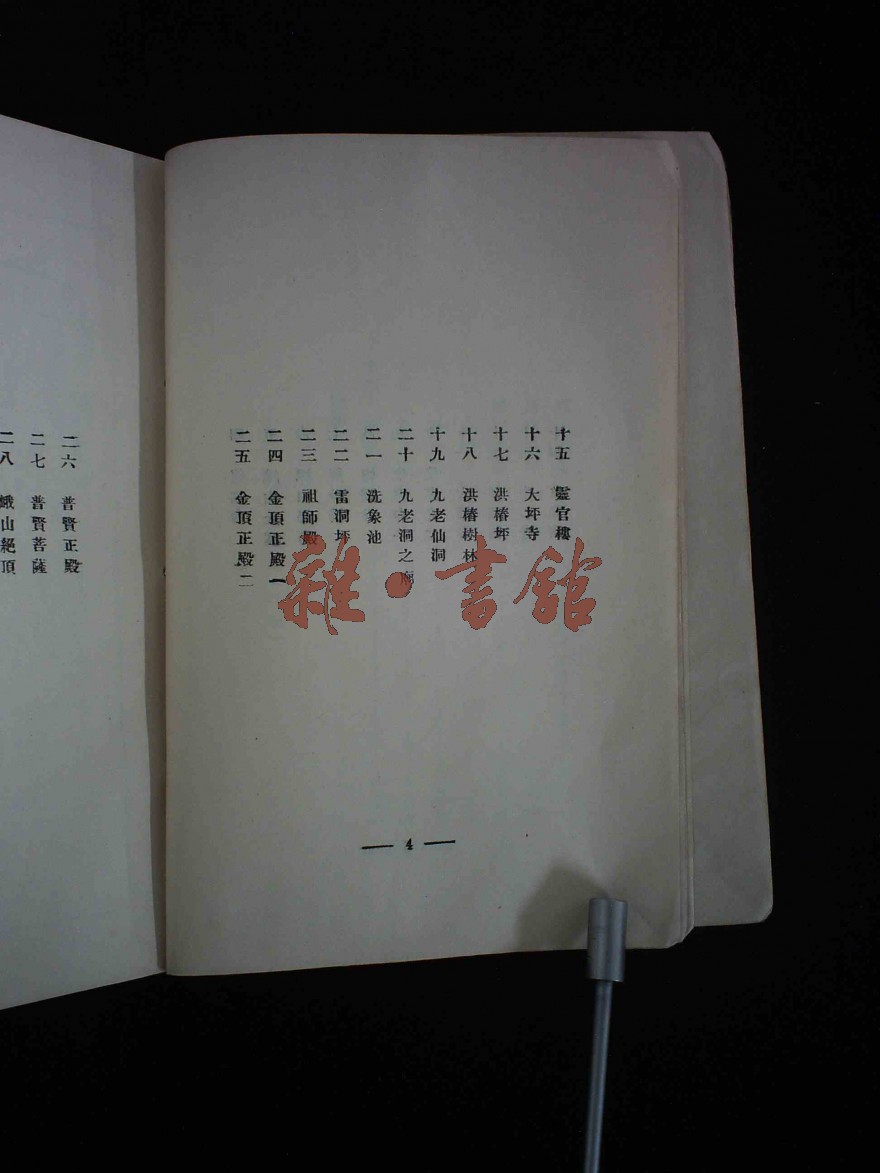 十五 靈官樓
十六 大坪寺
十七 洪椿坪
十八 洪椿樹林
十九 九老仙洞
二十 九老洞之
二一 洗象池
二二 雷洞坪
二三 祖師殿
二四 金頂正殿一
二五 金頂正殿二
— 4 —
二六 普賢正殿
二七 普賢菩薩
二八 峨山絕頂
雜·書館